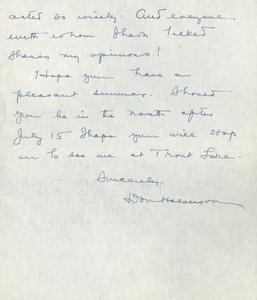 acted so wisely. And everyone
with whom I have talked
shares my opinions!
I hope you have a
pleasant summer. Should
you be in the north after
July 15 I hope you will stop
in to see me at Trout Lake.
Sincerely,
Don Halvorson